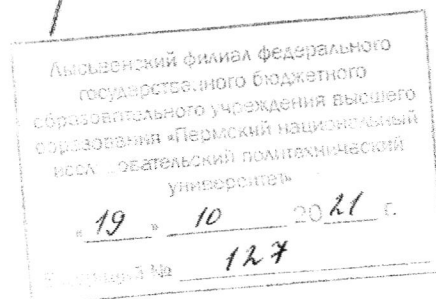 Лысьвенский филиал федерального
государственного бюджетного
образовательного учреждения высшего
образования «Пермский национальный
исследовательский политехнический
университет»
« 19 » 10 2021 г.
Входящий № 127